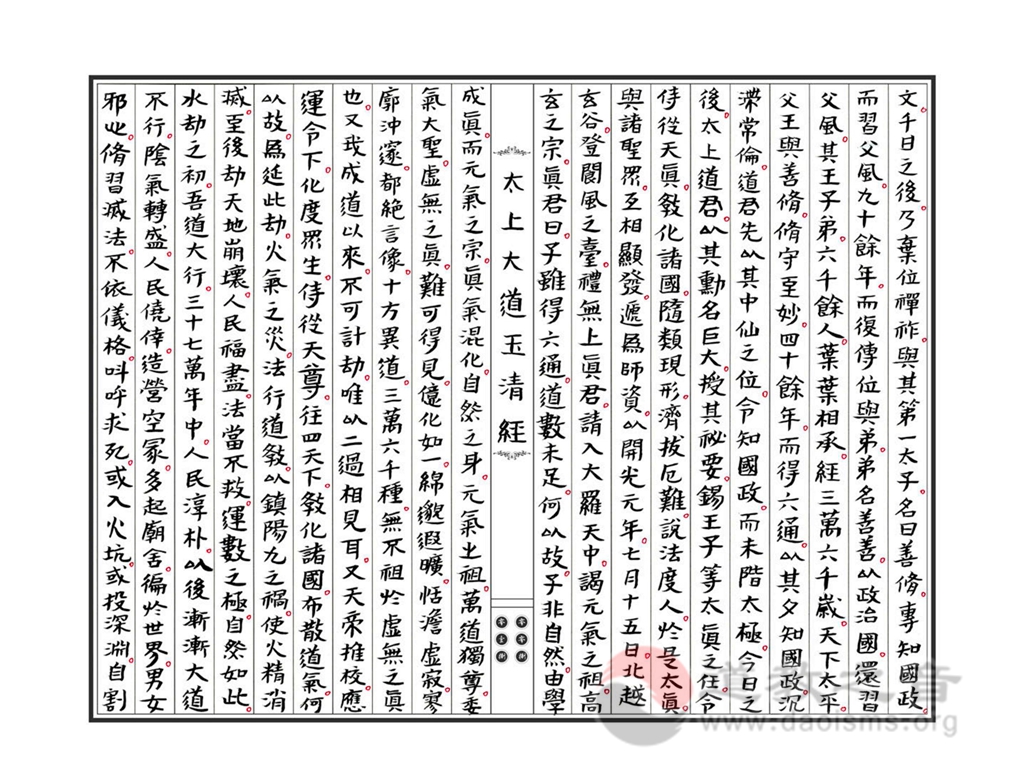 文千日之後乃棄位禪祚與其第一太子名曰善脩專知國政
而習父風九十餘年而復傳位與弟弟名善善以政治國還習
父風其王子弟六千餘人葉葉相承經三萬六千歲天下太平
父王與善脩脩守至妙四十餘年而得六通以其夕知國政沉
滯常倫道君先以其中仙之位令知國政而未階太極今日之
後太上道君以其勳名巨大授其祕要錫王子等太眞之任令
侍從天眞教化諸國隨類現形濟拔厄難說法度人於是太眞
與諸聖眾互相顯發遞爲師資以開光元年七月十五日北越
玄谷登閬風之臺禮無上眞君請入大羅天中謁元氣之祖高
玄之宗眞君曰子雖得六通道數未足何以故子非自然由學
太上大道玉清經
成眞而元氣之宗眞氣混化自然之身元氣土祖萬道獨尊委
氣大聖虛無之眞難可得見億化如一綿邈遐曠恬澹虛寂寥
廓沖邃都絶言像十方異道三萬六千種無不祖於虛無之眞
也又我成道以來不可計劫唯以二過相見耳又天帝推校應
運令下化度眾生侍從天尊往四天下教化諸國布散道氣何
以故爲延此劫火氣之災法行道教以鎮陽九之禍使火精消
滅至後劫天地崩壞人民福盡法當不救運數之極自然如此
水劫之初吾道大行三十七萬年中人民淳朴以後漸漸大道
不行陰氣轉盛人民僥倖造營空冢多起廟舍徧於世界男女
邪心脩習滅法不依儀格叫呼求死或入火坑或投深淵自割
道教之音
www.daoisms.org